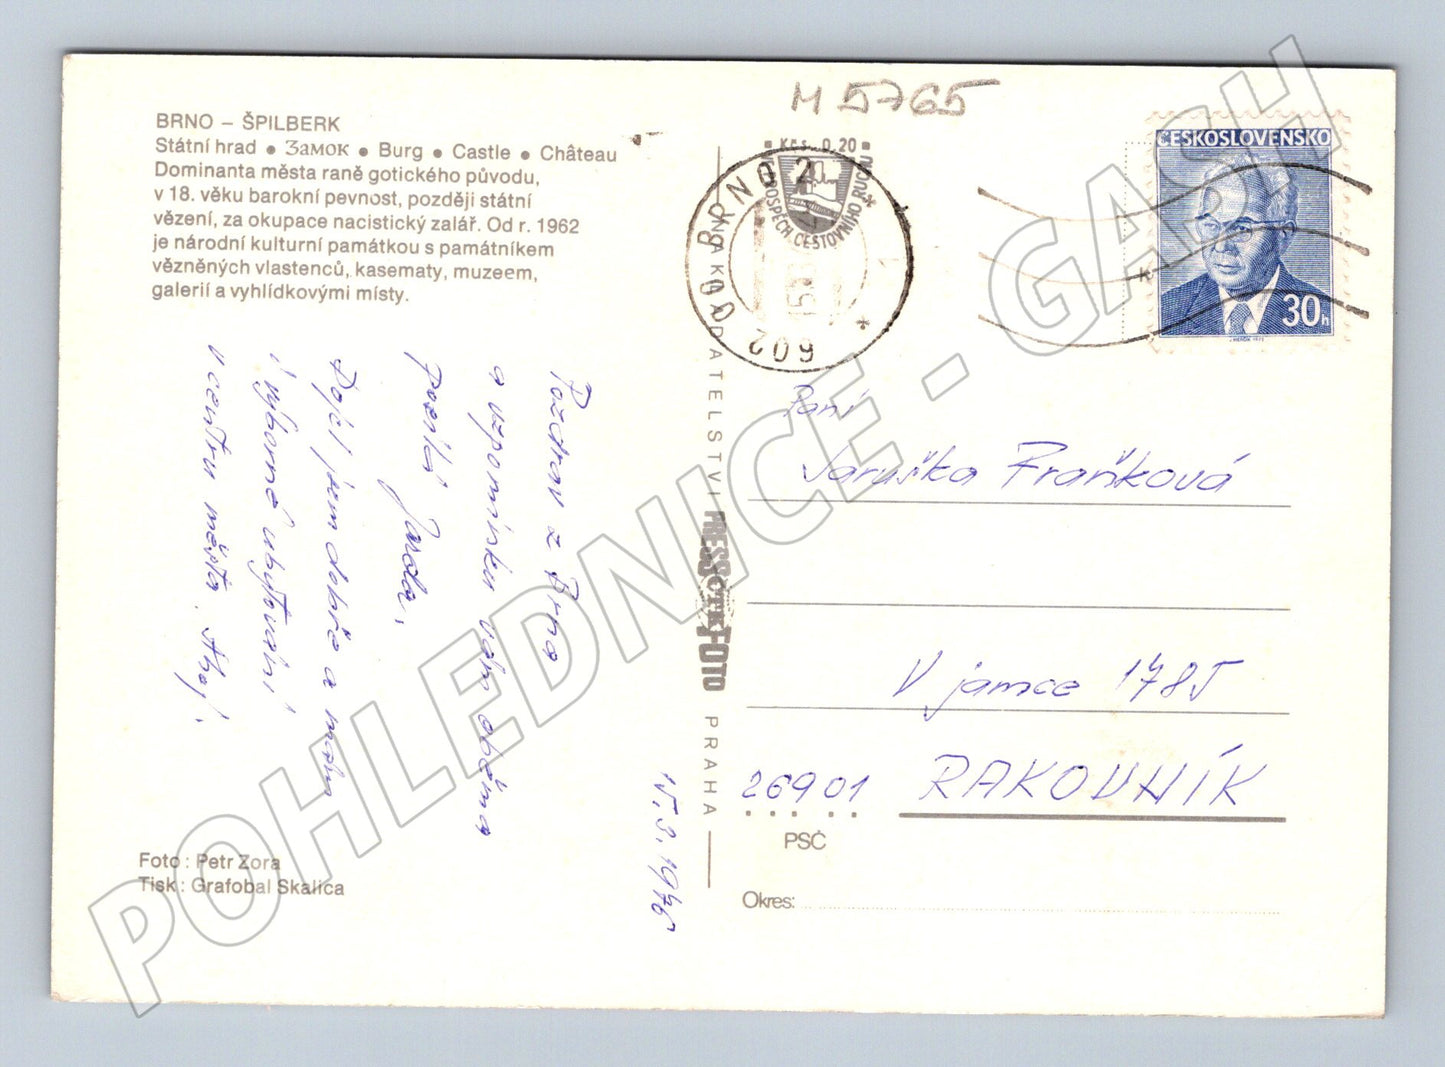 BRNO – ŠPILBERK
Státní hrad • Замок • Burg • Castle • Château
Dominanta města raně gotického původu,
v 18. věku barokní pevnost, později státní
vězení, za okupace nacistický zalář. Od r. 1962
je národní kulturní památkou s památníkem
vězněných vlastenců, kasematy, muzeem,
galerií a vyhlídkovými místy.
Pozdrav z Brna
a vzpomínku vám oběma
posílá Jarda.
Dojel jsem dobře a mám
i výborné ubytování
v centru města. Ahoj.
15. 3. 1976
Foto : Petr Zora
Tisk : Grafobal Skalica
NAKLADATELSTVÍ PRESSFOTO PRAHA
M 5765
Kčs 0,20
VE PROSPĚCH CESTOVNÍHO RUCHU
BRNO 2
602 00
ČESKOSLOVENSKO
30h
Paní
Jaruška Fraňková
V jamce 1785
26901 RAKOVNÍK
PSČ
Okres:
POHLEDNICE - GASH